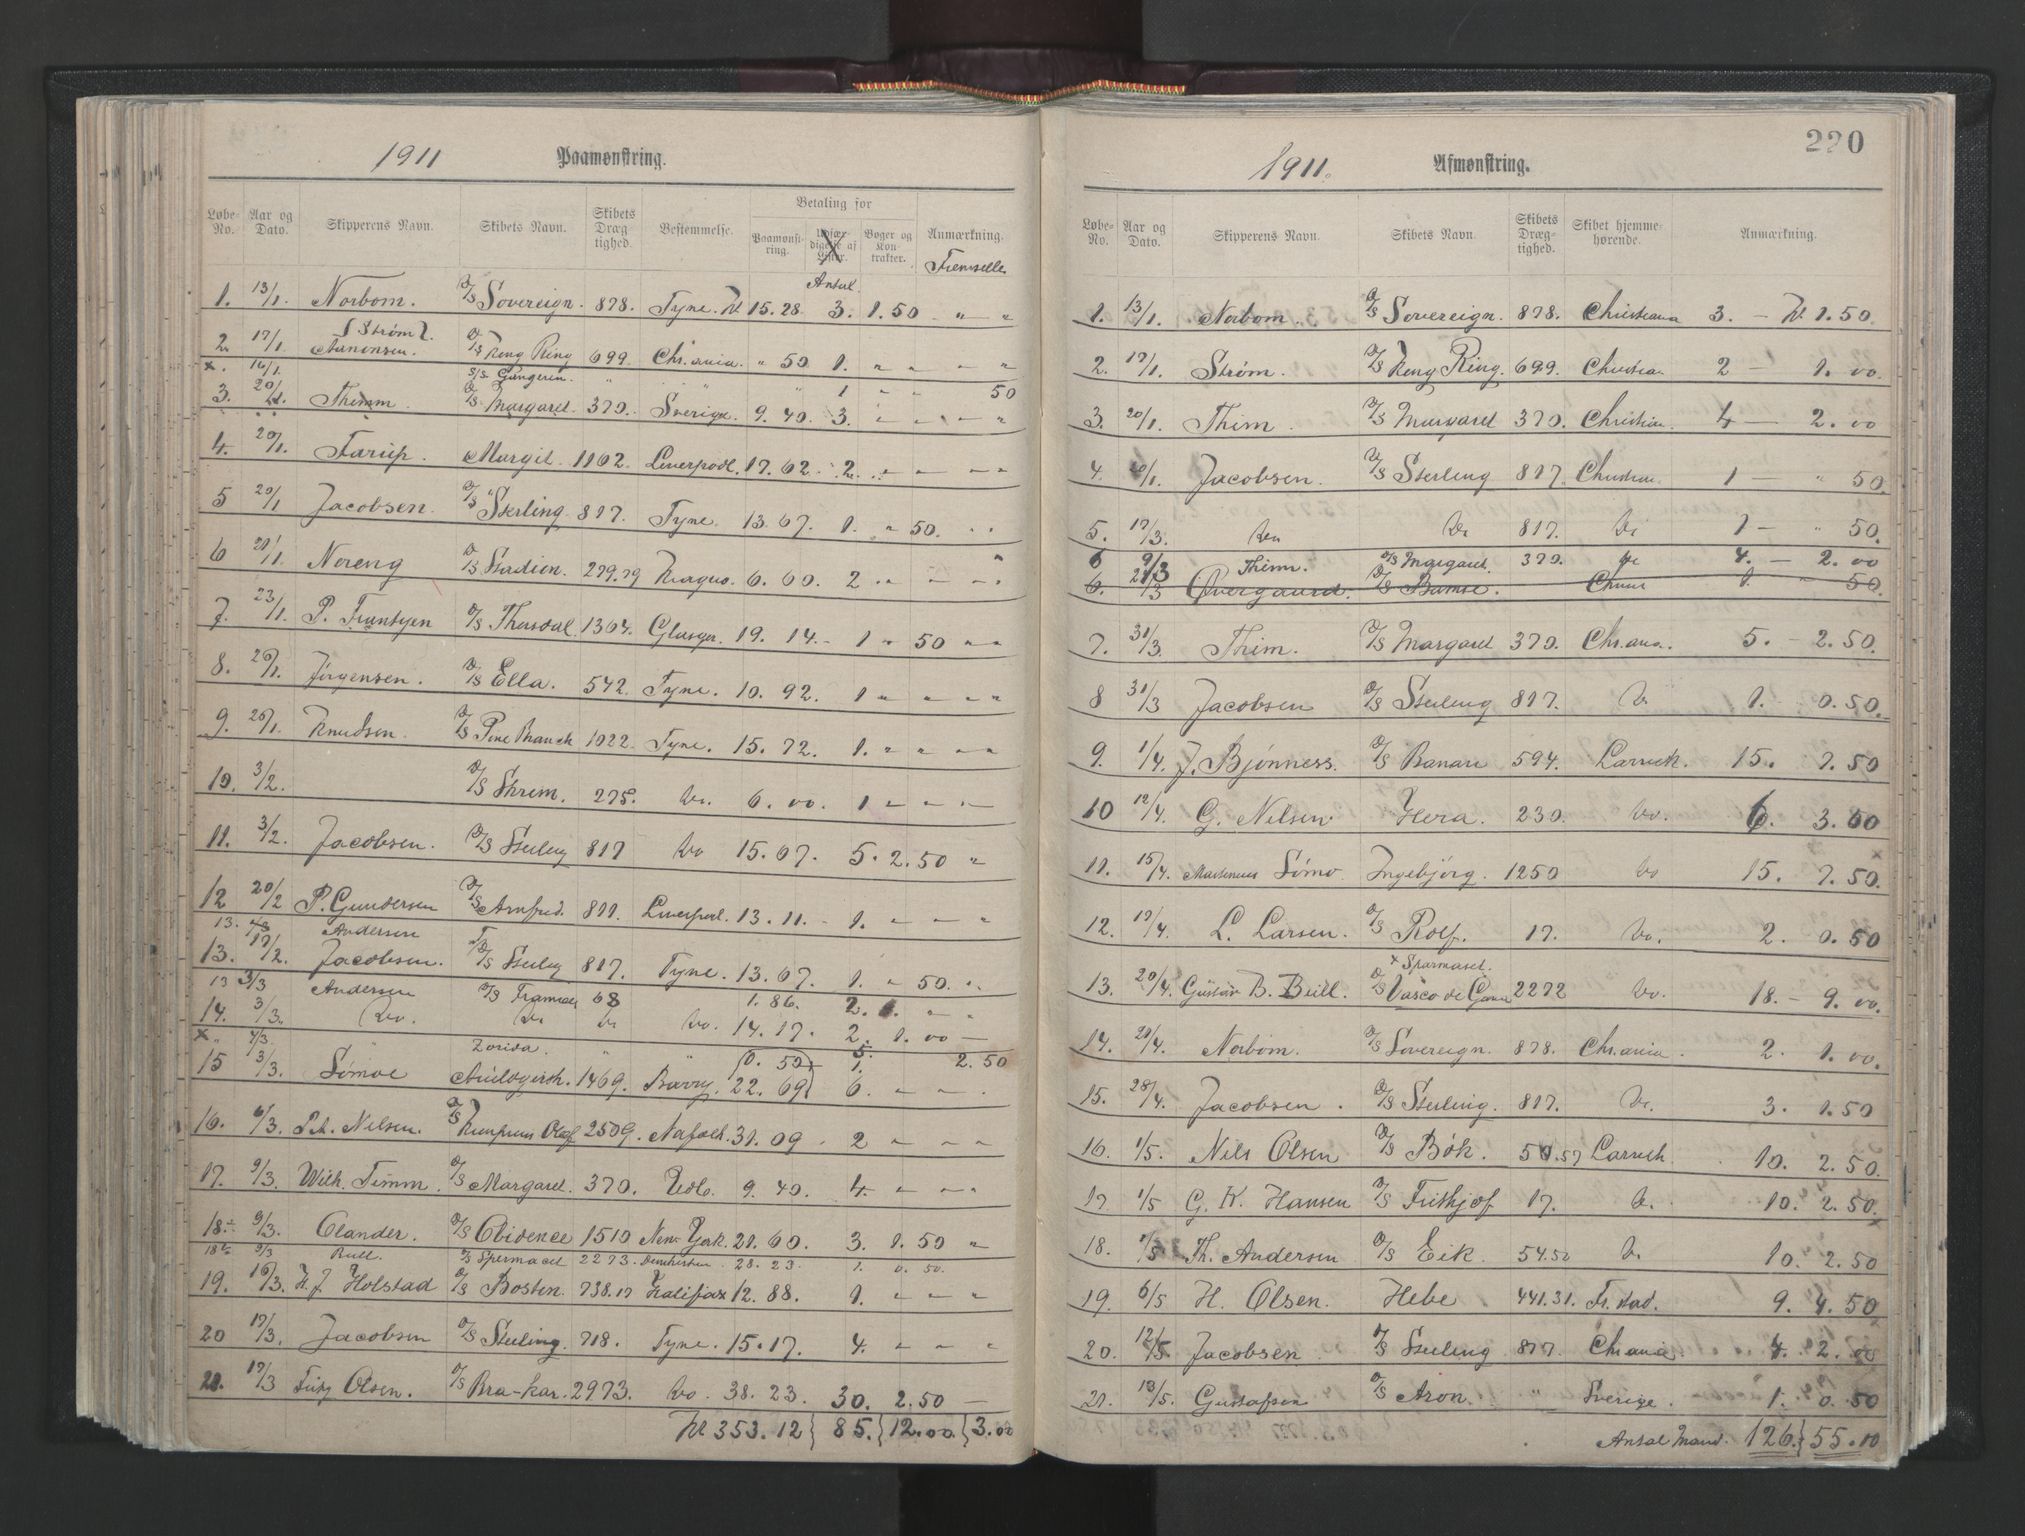 1911 Paamønstring.
Løbe-No. Aar og Dato. Skipperens Navn. Skibets Navn. Skibets Dræg-tighed. Bestemmelse. Betaling for Paamønst-ring. Udfær-digelse af Lister. Bøger og Kon-trakter. Anmærkning.
Antal. Fremstille
1. 13/1. Norbom. D/S Sovereign. 878. Tyne. Kr 15.28. 3. 1.50 " "
2. 17/1. { Strøm } Aanonsen. D/S Kong Ring 699. Chr.ania. " 50 1. " " " "
x. 16/1. S/S. Gungerin. " " " 1 " " 50
3. 20/1. Thimm. D/S Margaret. 370. Sverige. 9.40. 3. " " " "
4. 20/1. Farup. Margit. 1162. Liverpool. 17.62. 2. " " " "
5 20/1 Jacobsen. D/S "Sterling. 817. Tyne. 13.67. 1. " 50. " "
6 21/1. Noreng D/S Stadion. 279.79 Kragerø. 6.60. 2 " " " "
7. 23/1. P. Frantzen D/S Thorsdal. 1364. Glasgow. 19.14. - 1 " 50 " "
8. 26/1. Jørgensen. D/S Ella. 542. Tyne. 10.92. 1 " " " "
9. 26/1. Knudsen. D/S Pine Branch 1922. Tyne. 15.72. 1. " " " "
10. 3/2. D/S Skrim. 275. do. 6.00. 1 " " " "
11. 3/2. Jacobsen. D/S Sterling 817 do 15.67. 5. 2.50 "
12 20/2 P. Gundersen D/S Arnfred. 811. Liverpool. 13.11. - 1. " " "
13. 4/3 Andersen
13. 17/2. Jacobsen. D/S Sterling 817. Tyne. 13.67. 1. " 50. " "
13 3/3 Andersen D/S Framnæs 68 1.86. 2. " "
14. 3/3. do. do do do. 14.17. 2. 1.00 —
x " 4/3. " Zorida. " " (0.50) 5. 2.50
15 3/3. Sømoe 1469. Barry. 22.69) 6. " " .
16. 6/3. P.A. Nilsen. D/S 2509. 31.09. 2 " " "
17. 9/3. Wilh. Timm. D/S Margaret. 370. Udl. 9.40. 4. " " "
18. 9/3. Olander. D/S Obidence 1510 New York. 21.60. 3. 1.50 "
18½ 9/3 Bull. D/S Spermacet 2273. 28.23. 1. 0.50.
19. 16/3. H. J. Holstad D/S Bosten. 738.17 Halifax 12.88. 1. " " "
20 17/3. Jacobsen D/S Sterling. 718. Tyne. 15.17. 4. " " "
21. 17/3 Fritz Olsen. D/S Bra-Kar. 2973. do. 38.23. 30. 2.50 —
Kr 353.12 } 85. { 12.00 } 3.00
220
1911. Afmønstring.
Løbe-No. Aar og Dato. Skipperens Navn. Skibets Navn. Skibets Dræg-tighed. Skibet hjemme-hørende. Anmærkning.
1. 13/1. Norbom. D/S Sovereign. 878. Christiania 3. — Kr 1.50.
2. 17/1. Strøm. D/S Kong Ring. 699. Christian 2 — 1.00.
3. 20/1. Thim. D/S Margaret 370. Christian. 4 — 2.00
4. 20/1. Jacobsen. D/S Sterling 817. Christian. 1 — " 50.
5. 17/3. do do 817. do 1 — " 50.
6 9/3 Thim. D/S Margaret. 370. do 4. — 2.00
6. 21/3 Overgaard. D/S Bamse. Chania 1. " 50.
7. 31/3. Thim. D/S Margaret 370. Chr.ania. 5. — 2.50.
8 31/3 Jacobsen D/S Sterling 817. do. 1. 0.50.
9. 1/4. J. Bjønness. D/S Banan 594. Larvick. 15. 7.50
10 12/4. G. Nilsen. Hera. 230. do. 6. 3.00
11. 15/4. Martenius Sømo. Ingebjørg. 1250 do 15. 7.50. x
12. 17/4. L. Larsen. D/S Rolf. 17. do. 2. 0.50
x Sparmaset.
13. 20/4. Gustav B. Bull. D/S Vasco de Gama 2272 do. 18. - 9.00.
14. 21/4. Norbom. D/S Sovereign. 878. Chr.ania. 2. 1.00.
15. 28/4. Jacobsen. D/S Sterling. 817. do. 3. 1.50
16. 1/5. Nils Olsen D/S Bøk. 50.57 Larvick. 10. 2.50.
17 1/5 G. K. Hansen D/S Fritkjof 17. do. 10. 2.50.
18. 1/5 Th. Andersen D/S Eik. 54.50 do. 10. 2.50
19. 6/5 H. Olsen. Hebe 441.31. Fr.stad. 9. 4.50
20. 12/5. Jacobsen D/S Sterling 817. Chr.ania. 4. 2.00
21. 13/5. Gustafsen D/S Aron. " Sverige. 1. 0.50
Antal Mand. 126. } 55.10